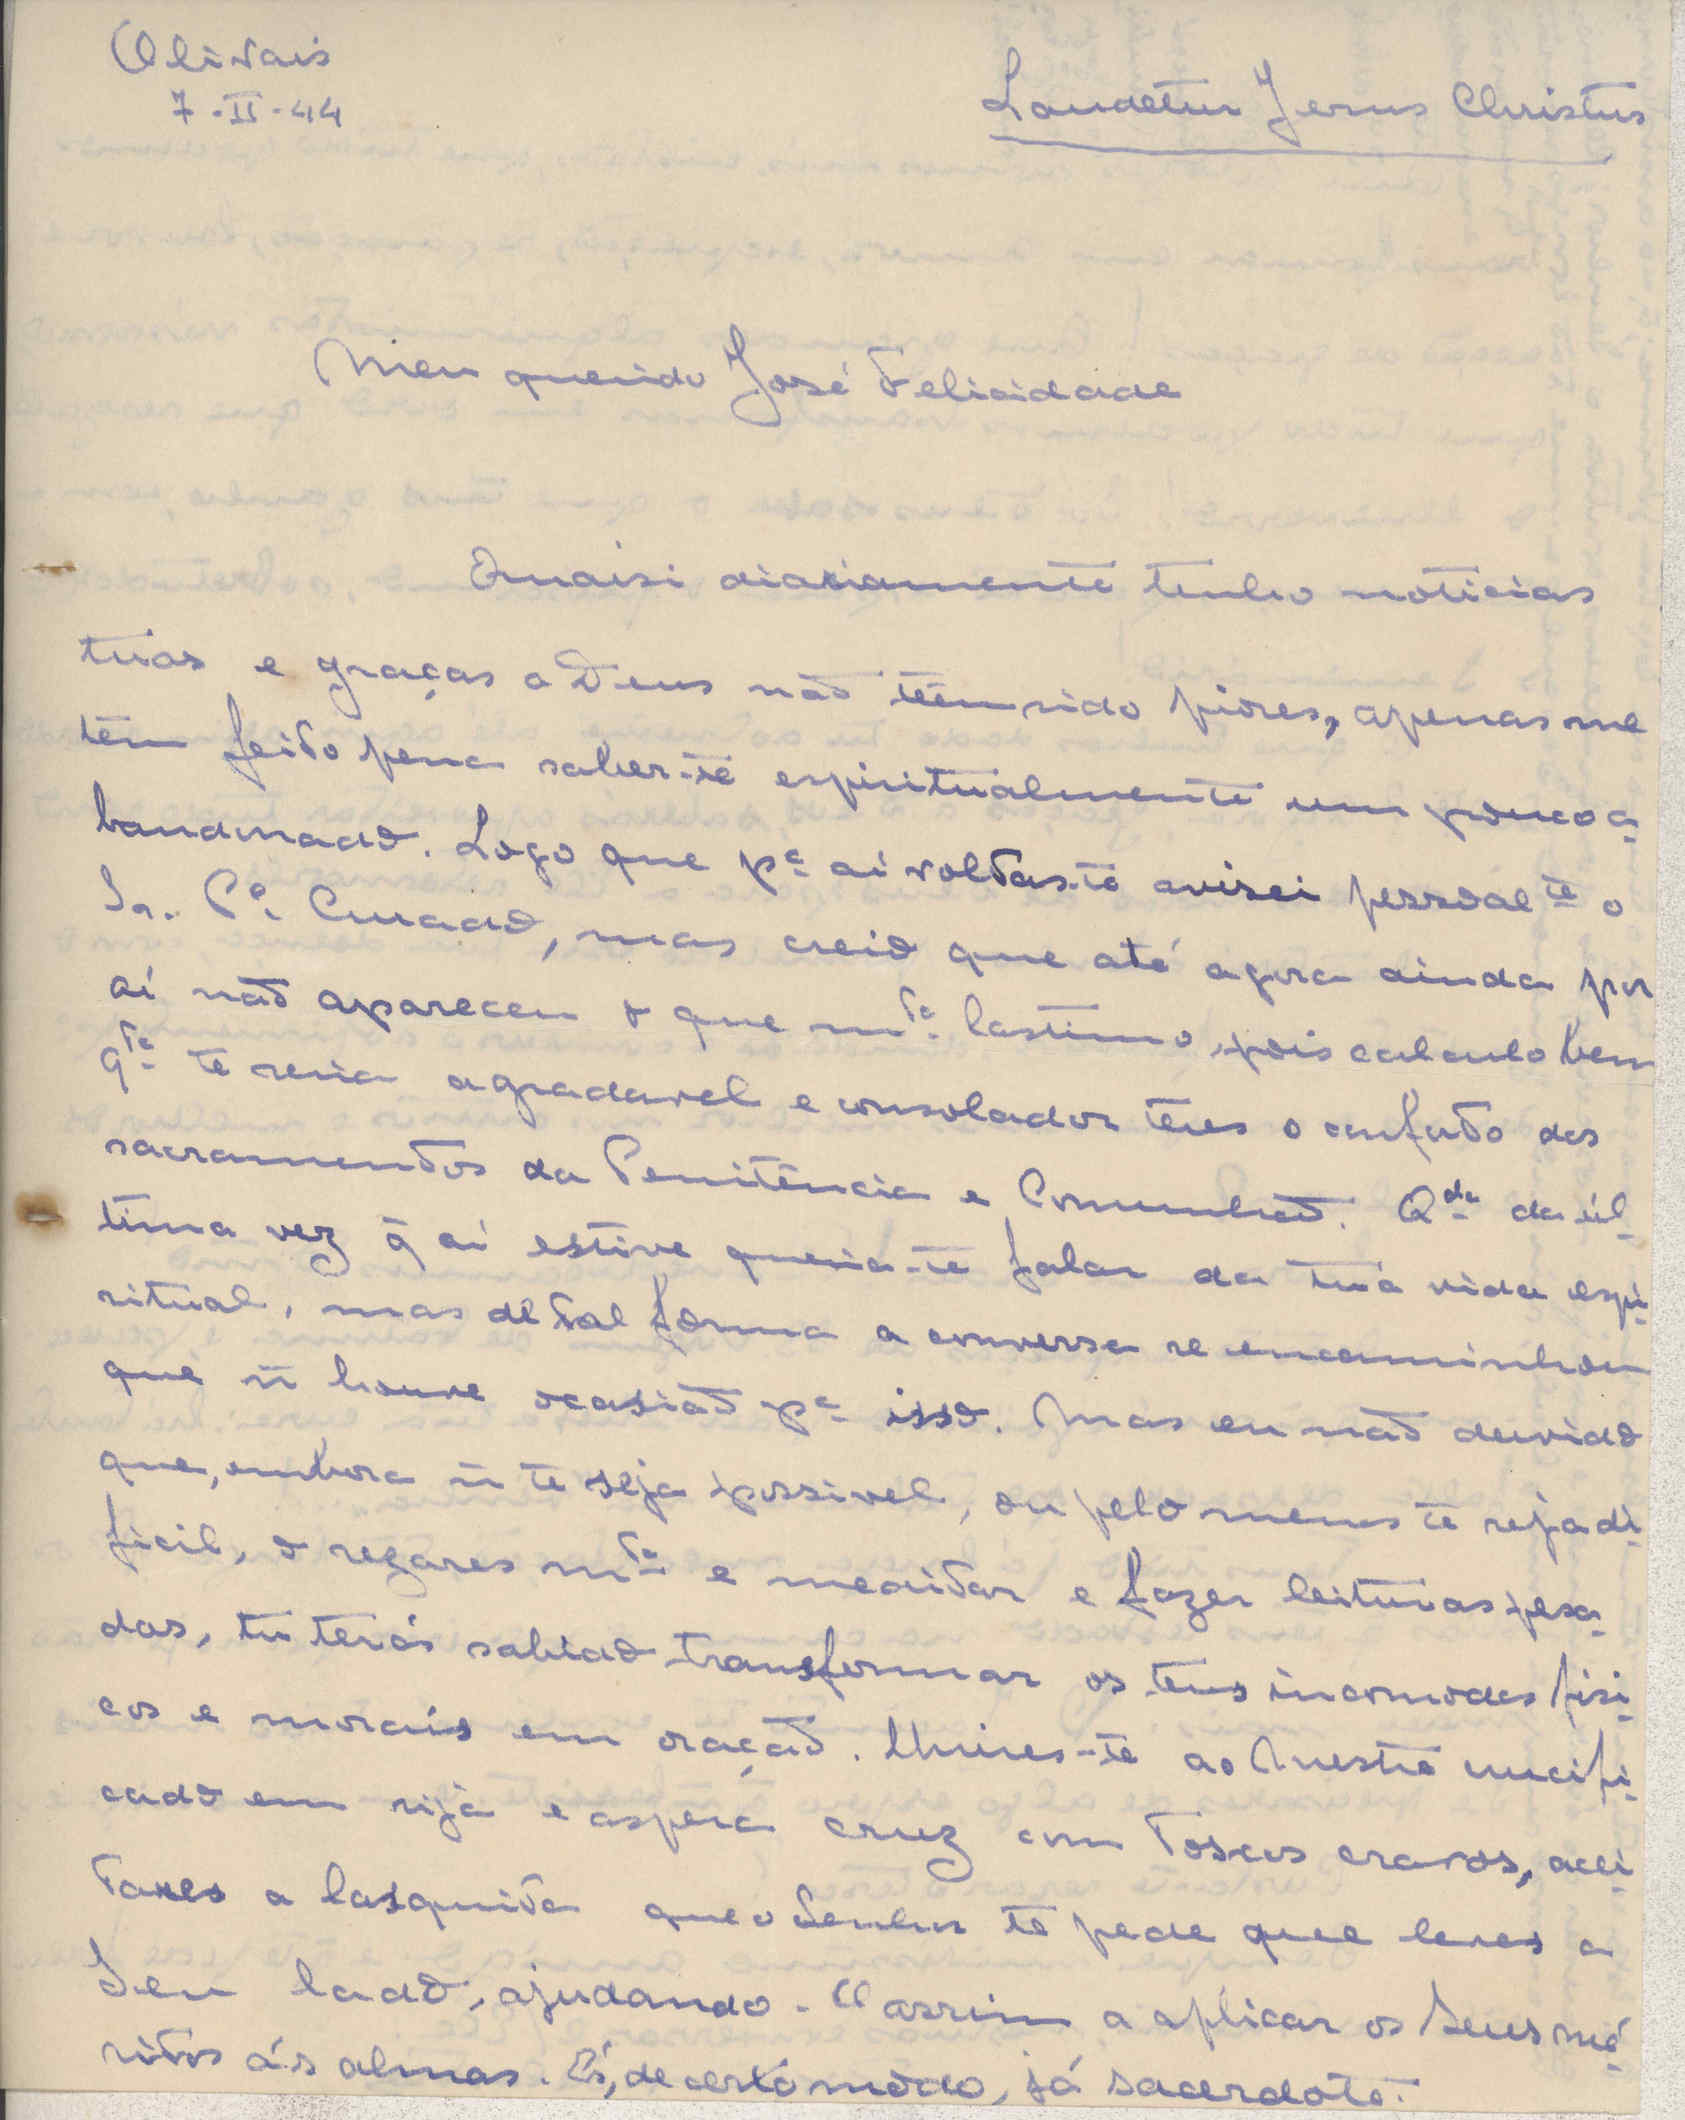 Olivais
7-II-44
Laudetur Jesus Christus
Meu querido José Felicidade
Quaisi diariamente tenho noticias
tuas e graças a Deus não têem sido piores, apenas me
tem feito pena saber-te espiritualmente um pouco a-
bandonado. Logo que pª aí voltaste avisei pessoalte o
Sr. Pe. Cruado, mas creio que até agora ainda por
aí não apareceu o que mto lastimo, pois calculo bem
qto te seria agradavel e consolador teres o conforto dos
sacramentos da Penitência e Comunhão. Qdo da úl-
tima vez q̃ aí estive queria-te falar da tua vida espi-
ritual, mas de tal forma a conversa se encaminhou
que ñ houve ocasião pª isso. Mas eu não duvido
que, embora ñ te seja possivel, ou pelo menos te seja di-
ficil, o rezares mto e meditar e fazer leituras pesa-
das, tu terás sabido transformar os teus incomodos fisi-
cos e morais em oração. Unires-te ao Mestre crucifi-
cado em rija e aspera cruz com toscos cravos, acei-
tares a lasquita que o Senhor te pede que leves a
Seu lado, ajudando-O assim a aplicar os Seus mé-
ritos ás almas. És, de certo modo, já sacerdote.